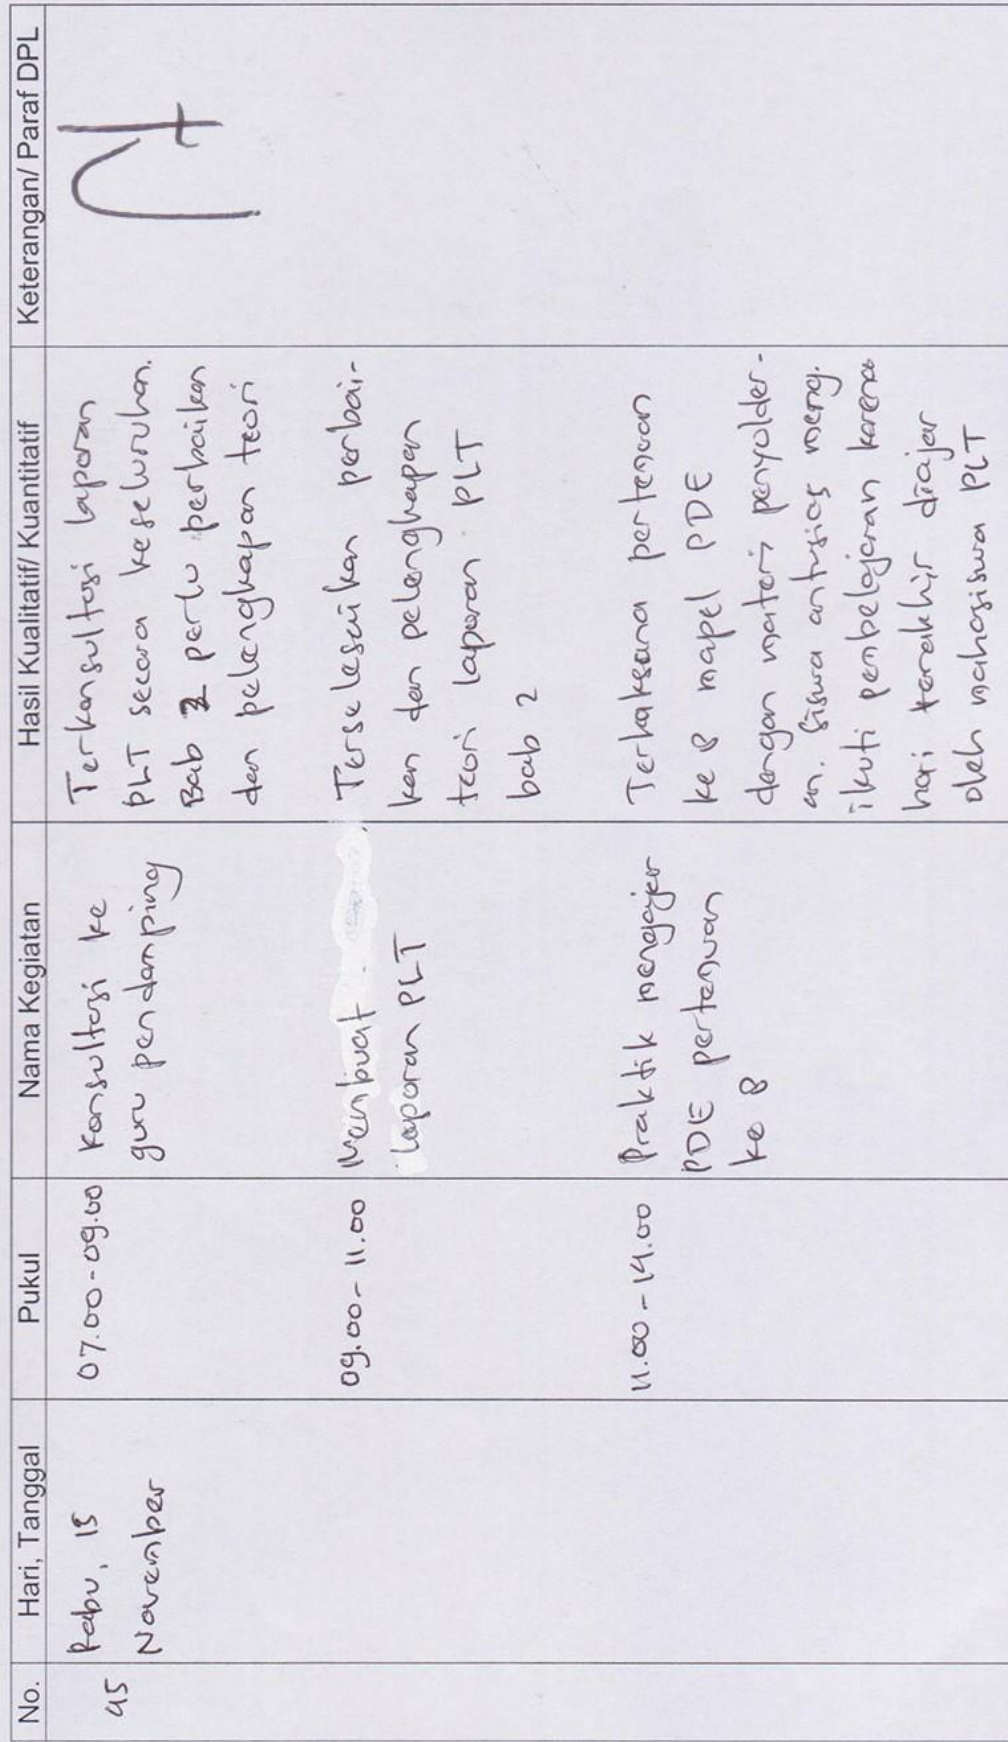 No.
Hari, Tanggal
Pukul
Nama Kegiatan
Hasil Kualitatif/ Kuantitatif
Keterangan/ Paraf DPL
45
Rabu, 15
November
07.00-09.00
Konsultasi ke
guru pendamping
Terkonsultasi laporan
PLT secara keseluruhan.
Bab 2 perlu perbaikan
dan pelengkapan teori
09.00-11.00
Membuat
laporan PLT
Terselesaikan perbai-
kan dan pelengkapan
teori laporan PLT
bab 2
11.00-14.00
Praktik mengajar
PDE pertemuan
ke 8
Terlaksana pertemuan
ke 8 mapel PDE
dengan materi penyolder-
an. Siswa antusias meng-
ikuti pembelajaran karena
hari terakhir diajar
oleh mahasiswa PLT